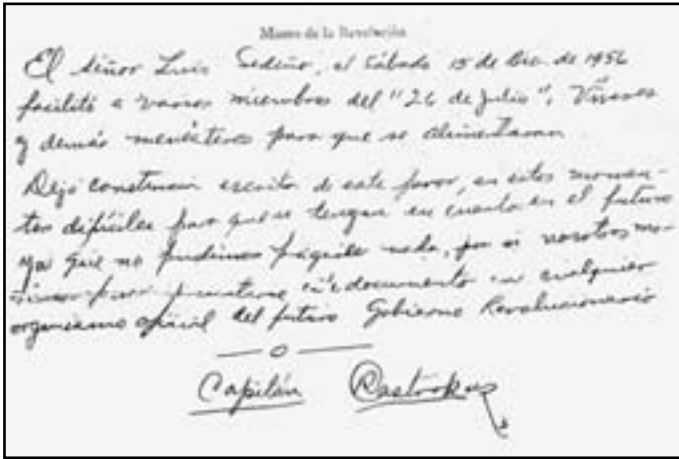 Museo de la Revolución
El señor Luis Cedeño, el Sábado 15 de Dic. de 1956
facilitó a varios miembros del "26 de Julio", Víveres
y demás menésteres para que se alimentaran
Dejo constancia escrita de este favor, en estos momen-
tos difíciles para que se tengan en cuenta en el futuro
ya que no pudimos pagarle nada, por si nosotros mo-
presentarse documento en cualquier
organismo oficial del futuro Gobierno Revolucionario
Capitán